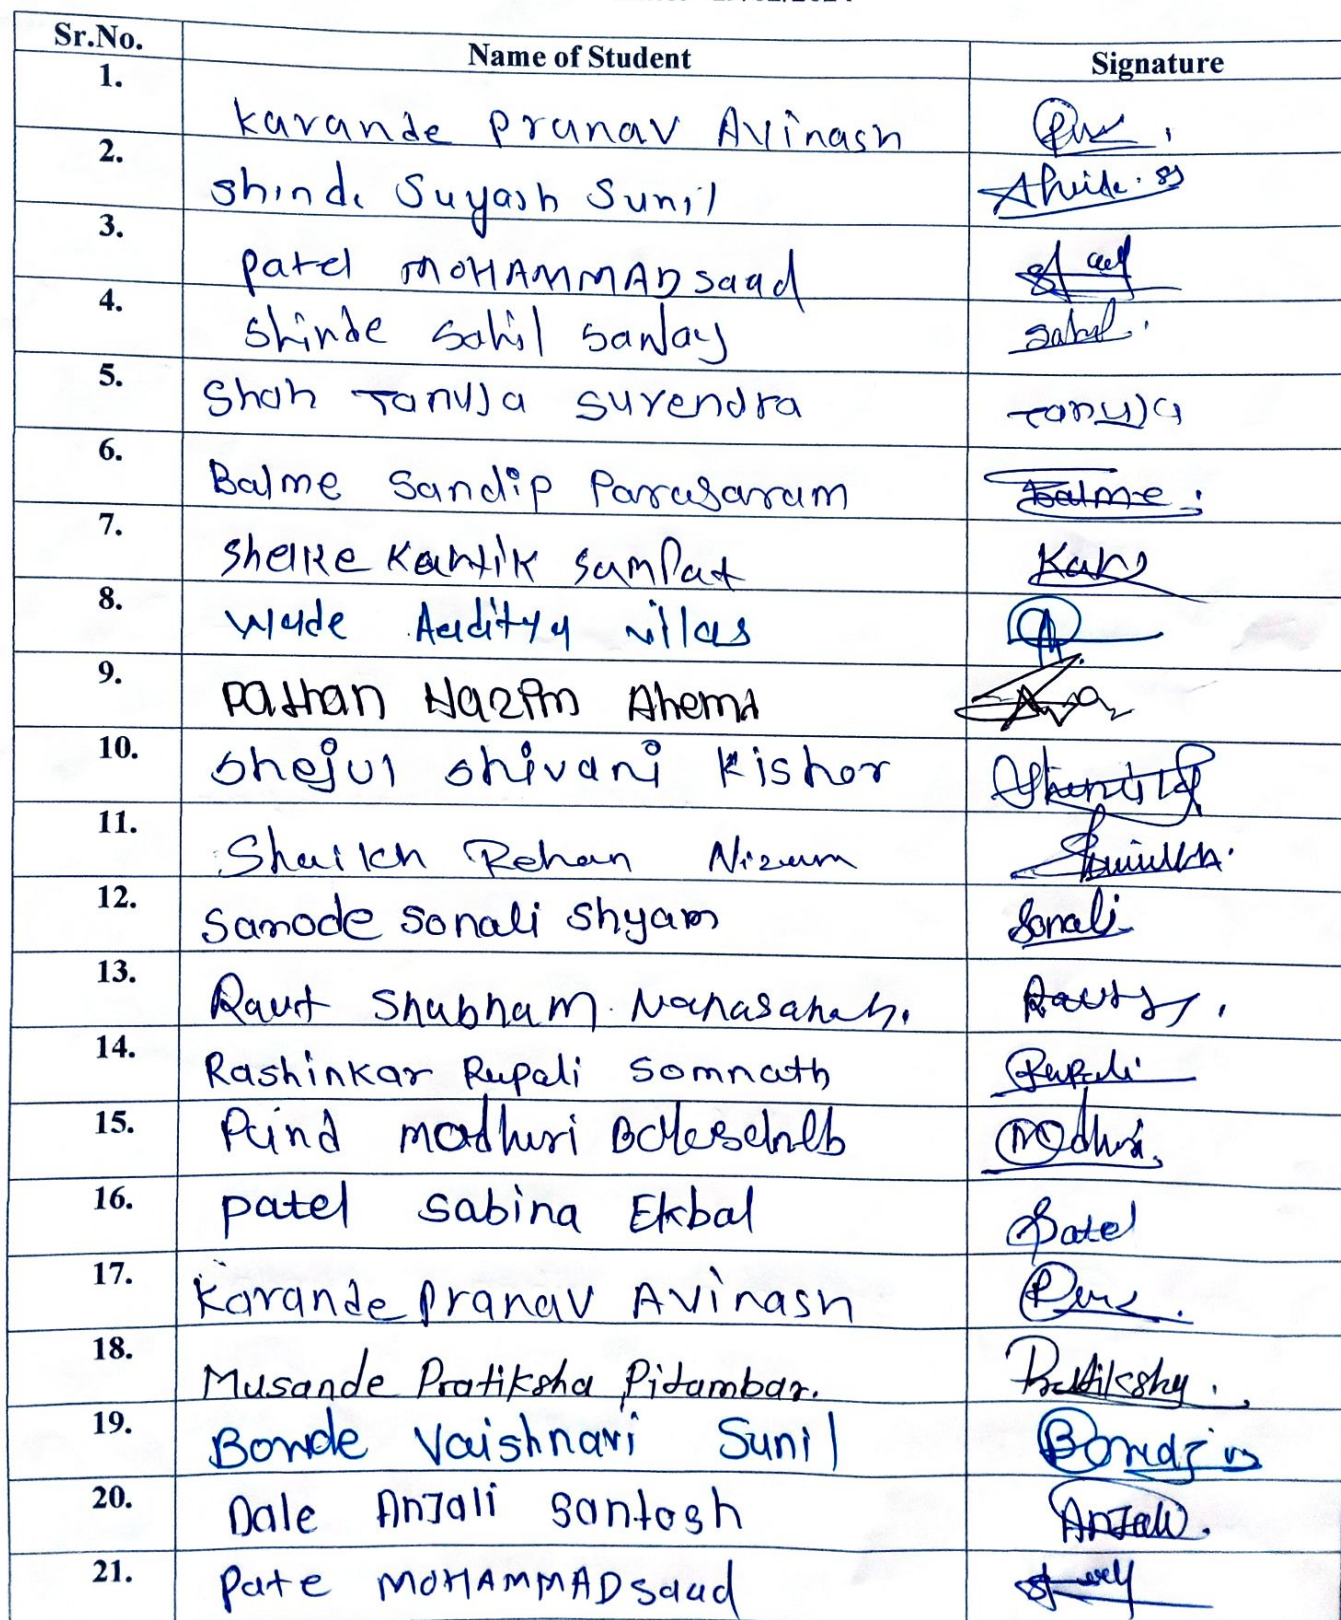 Sr.No. Name of Student Signature
1. Karande Pranav Avinash
2. Shinde Suyash Sunil
3. Patel MOHAMMAD saad
4. Shinde Sahil Sanjay Sahil.
5. Shah Tanuja Surendra Tanuja
6. Balme Sandip Parasaram Balme.
7. Shelke Kartik Sampat
8. Wade Aaditya vilas
9. Pathan Nazim Ahemd
10. Shejul Shivani Kishor
11. Shaikh Rehan Nizam
12. Samode Sonali Shyam Sonali
13. Raut Shubham Nanasaheb.
14. Rashinkar Rupali Somnath Rupali
15. Madhuri Madhuri
16. Patel Sabina Ekbal Patel
17. Karande Pranav Avinash
18. Musande Pratiksha Pitambar. Pratiksha.
19. Bonde Vaishnavi Sunil
20. Dale Anjali Santosh Anjali.
21. Pate MOHAMMAD saad